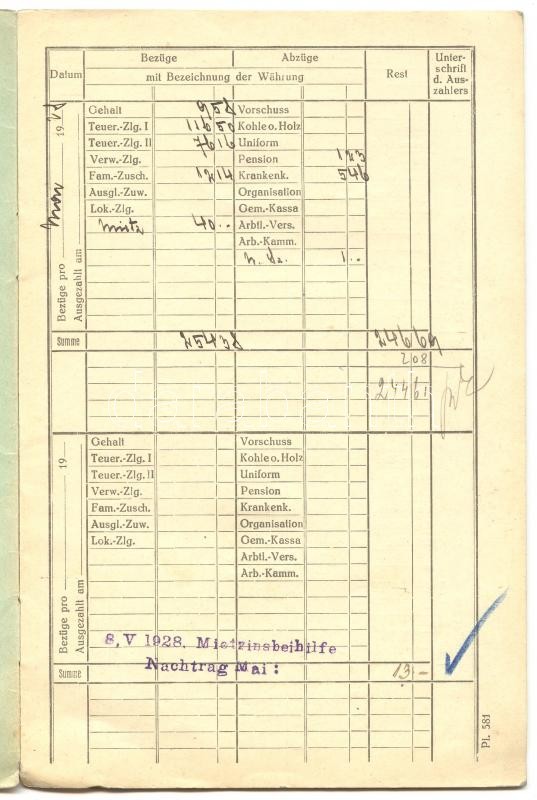 Datum Bezüge Abzüge Rest Unter-
schrift
d. Aus-
zahlers
mit Bezeichnung der Währung
Bezüge pro 19
Ausgezahlt am
Gehalt Vorschuss
Teuer.-Zlg. I 116 50 Kohle o. Holz
Teuer.-Zlg. II Uniform
Verw.-Zlg. Pension 1 23
Fam.-Zusch. 12 14 Krankenk. 5 46
Ausgl.-Zuw. Organisation
Lok.-Zlg. Gem.-Kassa
40 .. Arbtl.-Vers.
Arb.-Kamm.
1 ..
Summe 254 38 246 69
2 08
244 61
Bezüge pro 19
Ausgezahlt am
Gehalt Vorschuss
Teuer.-Zlg. I Kohle o. Holz
Teuer.-Zlg. II Uniform
Verw.-Zlg. Pension
Fam.-Zusch. Krankenk.
Ausgl.-Zuw. Organisation
Lok.-Zlg. Gem.-Kassa
Arbtl.-Vers.
Arb.-Kamm.
8. V 1928. Mietzinsbeihilfe
Nachtrag Mai:
Summe 13.-
Pl. 581